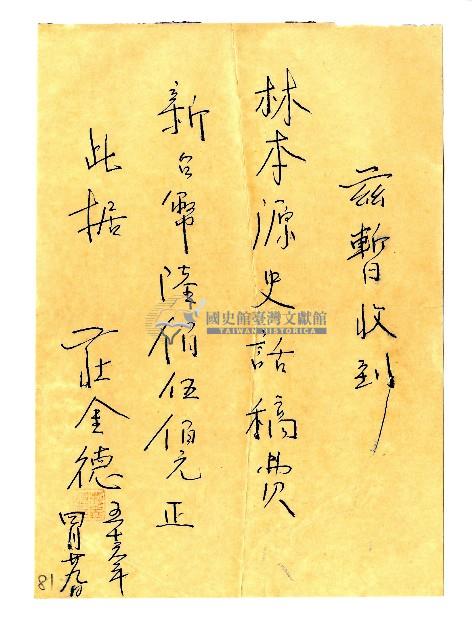 茲暫收到
林本源史話稿費
新台幣陸伍佰元正
此据 莊金德
四月廿九日
國史館臺灣文獻館
TAIWAN HISTORICA
81